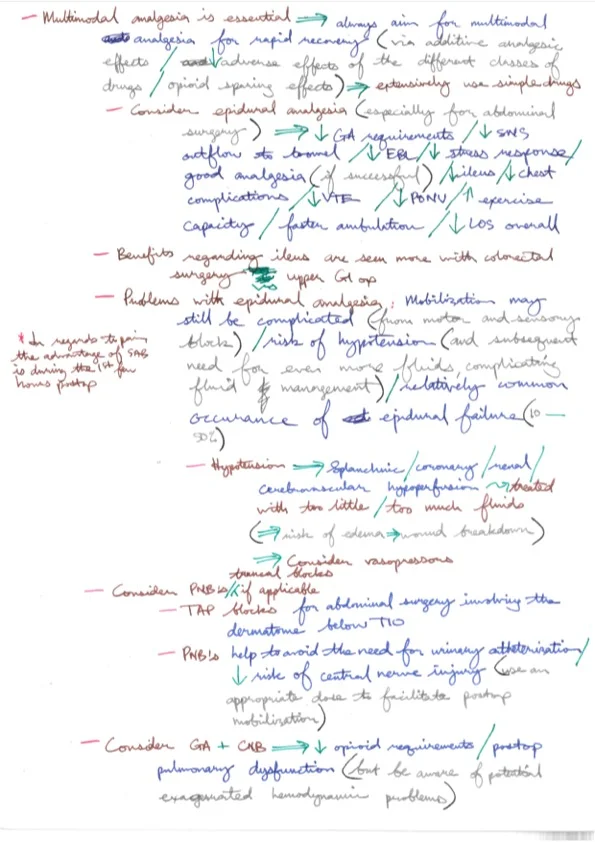 – Multimodal analgesia is essential ⇒ always aim for multimodal
analgesia for rapid recovery (via additive analgesic
effects / ↓ adverse effects of the different classes of
drugs / opioid sparing effects) ⇒ extensively use simple drugs
– Consider epidural analgesia (especially for abdominal
surgery) ⇒ ↓ GA requirements / ↓ SNS
outflow to bowel / ↓ EBL / ↓ stress response /
good analgesia (if successful) / ↓ ileus / ↓ chest
complications / ↓ VTE / ↓ PONV / ↑ exercise
capacity / faster ambulation / ↓ LOS overall
– Benefits regarding ileus are seen more with colorectal
surgery vs upper GI op
– Problems with epidural analgesia: Mobilization may
still be complicated (from motor and sensory
block) / risk of hypotension (and subsequent
need for even more fluids, complicating
fluid management) / relatively common
occurance of epidural failure (10 –
50%)
* In regards to pain
the advantage of SAB
is during the 1st few
hours postop
– Hypotension ⇒ Splanchnic / coronary / renal /
cerebrovascular hypoperfusion ⇝ treated
with too little / too much fluids
(⇒ risk of edema → wound breakdown)
⇒ Consider vasopressors
– Consider PNB's / truncal blocks if applicable
– TAP blocks for abdominal surgery involving the
dermatome below T10
– PNB's help to avoid the need for urinary catheterization /
↓ risk of central nerve injury (use an
appropriate dose to facilitate postop
mobilization)
– Consider GA + CNB ⇒ ↓ opioid requirements / postop
pulmonary dysfunction (but be aware of potential
exagerated hemodynamic problems)